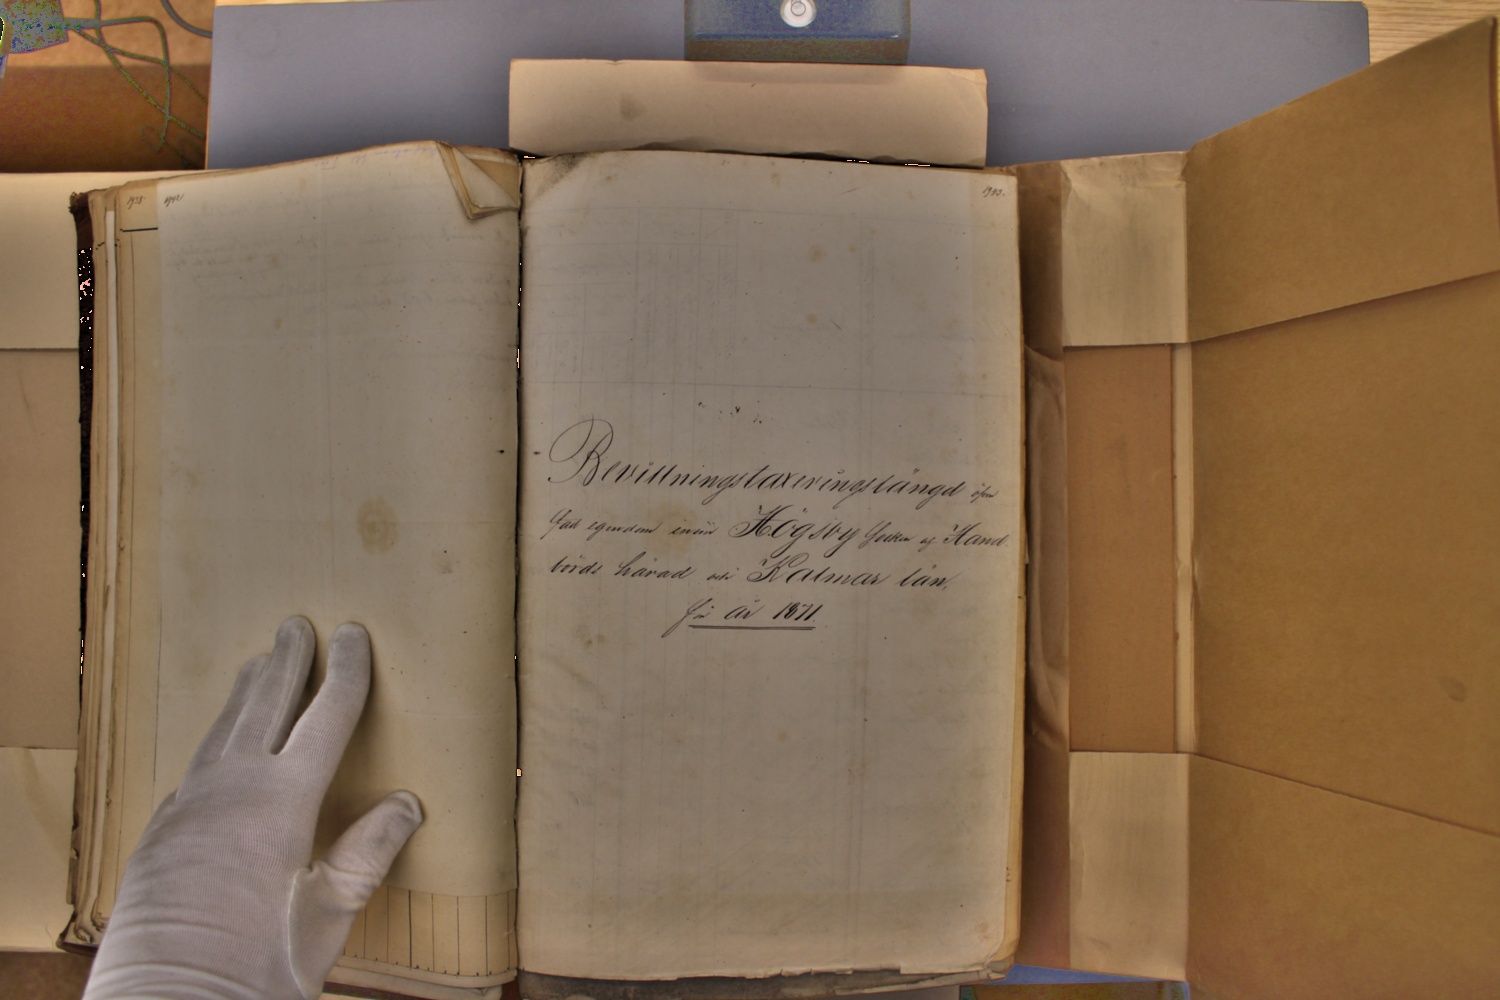 1938
1942
1943.
Bevillningstaxeringslängd öfver
fast egendom inom Högsby Socken af Hand-
börds härad och Kalmar län,
för år 1871.